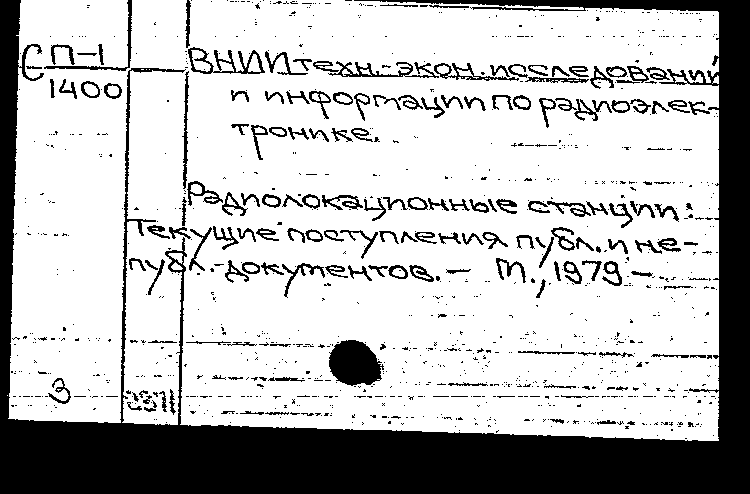 С П-1
1400
ВНИИ техн.-экон. исследований
и информации по радиоэлек-
тронике.
Радиолокационные станции:
Текущие поступления публ. и не-
публ. документов. — М., 1979 —
3